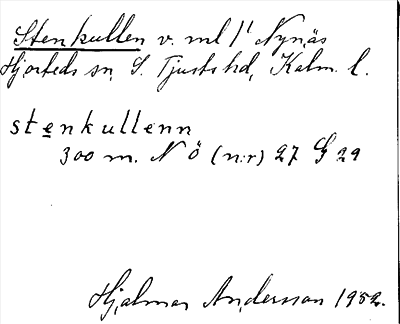 Stenkullen v. ml 1' Nynäs
Hjorteds sn, S. Tjusts hd, Kalm. l.
stenkullenn
300 m. N Ö (n:r) 27 G 29
Hjalmar Andersson 1952.